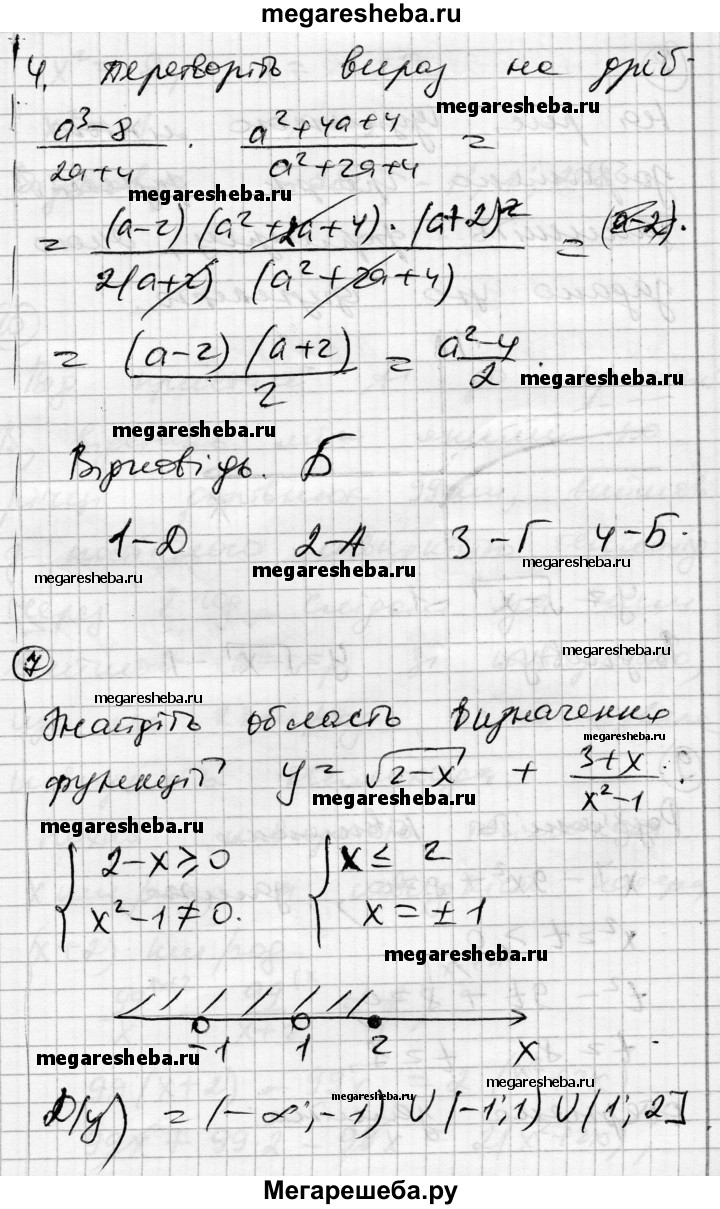 megaresheba.ru
4. Перетворіть вираз на дріб
megaresheba.ru
(a³-8)/(2a+4) · (a²+4a+4)/(a²+2a+4) =
megaresheba.ru
= ((a-2)(a²+2a+4)·(a+2)²)/(2(a+2)(a²+2a+4)) = (a-2).
= ((a-2)(a+2))/2 = (a²-4)/2.
megaresheba.ru
megaresheba.ru
Відповідь. Б
1-Д 2-А 3-Г 4-Б.
megaresheba.ru
megaresheba.ru
megaresheba.ru
7
megaresheba.ru
megaresheba.ru
Знайдіть область визначення
megaresheba.ru
функції y = √(2-x) + (3+x)/(x²-1).
megaresheba.ru
megaresheba.ru
{ 2-x ≥ 0 { x ≤ 2
{ x²-1 ≠ 0. { x = ±1
megaresheba.ru
-1 1 2 x
megaresheba.ru
megaresheba.ru
megaresheba.ru
D(y) = (-∞; -1) ∪ (-1; 1) ∪ (1; 2]
Мегарешеба.ру